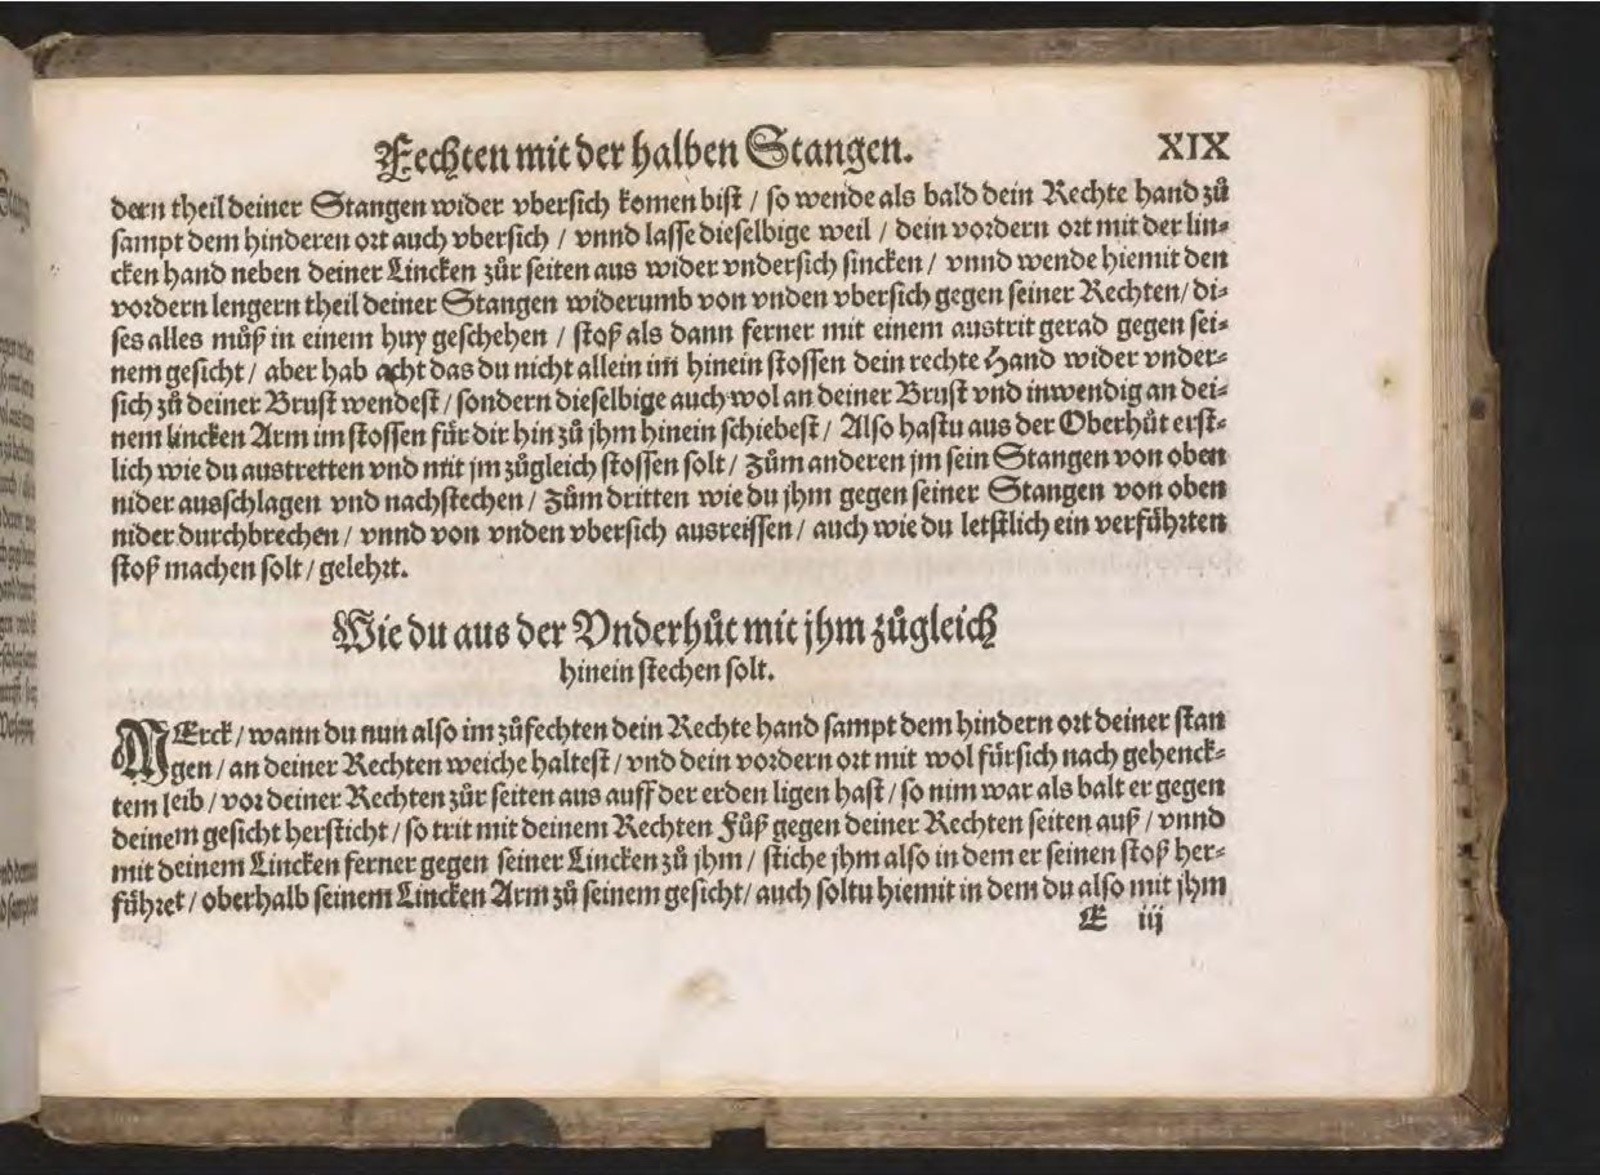 Fechten mit der halben Stangen. XIX
dern theil deiner Stangen wider vbersich komen bist / so wende als bald dein Rechte hand zů
sampt dem hinderen ort auch vbersich / vnnd lasse dieselbige weil / dein vordern ort mit der lin⸗
cken hand neben deiner Lincken zůr seiten aus wider vndersich sincken / vnnd wende hiemit den
vordern lengern theil deiner Stangen widerumb von vnden vbersich gegen seiner Rechten / di⸗
ses alles můß in einem huy geschehen / stoß als dann ferner mit einem austrit gerad gegen sei⸗
nem gesicht / aber hab acht das du nicht allein im̃ hinein stossen dein rechte Hand wider vnder⸗
sich zů deiner Brust wendest / sondern dieselbige auch wol an deiner Brust vnd inwendig an dei⸗
nem lincken Arm im stossen für dir hin zů jhm hinein schiebest / Also hastu aus der Oberhůt erst⸗
lich wie du austretten vnd mit jm zůgleich stossen solt / Zům anderen jm sein Stangen von oben
nider ausschlagen vnd nachstechen / Zům dritten wie du jhm gegen seiner Stangen von oben
nider durchbrechen / vnnd von vnden vbersich ausreissen / auch wie du letstlich ein verführten
stoß machen solt / gelehrt.
Wie du aus der Vnderhůt mit jhm zůgleich
hinein stechen solt.
MErck / wann du nun also im zůfechten dein Rechte hand sampt dem hindern ort deiner stan
gen / an deiner Rechten weiche haltest / vnd dein vordern ort mit wol fürsich nach gehenck⸗
tem leib / vor deiner Rechten zůr seiten aus auff der erden ligen hast / so nim war als balt er gegen
deinem gesicht hersticht / so trit mit deinem Rechten Fůß gegen deiner Rechten seiten auß / vnnd
mit deinem Lincken ferner gegen seiner Lincken zů jhm / stiche jhm also in dem er seinen stoß her⸗
führet / oberhalb seinem Lincken Arm zů seinem gesicht / auch soltu hiemit in dem du also mit jhm
E iij